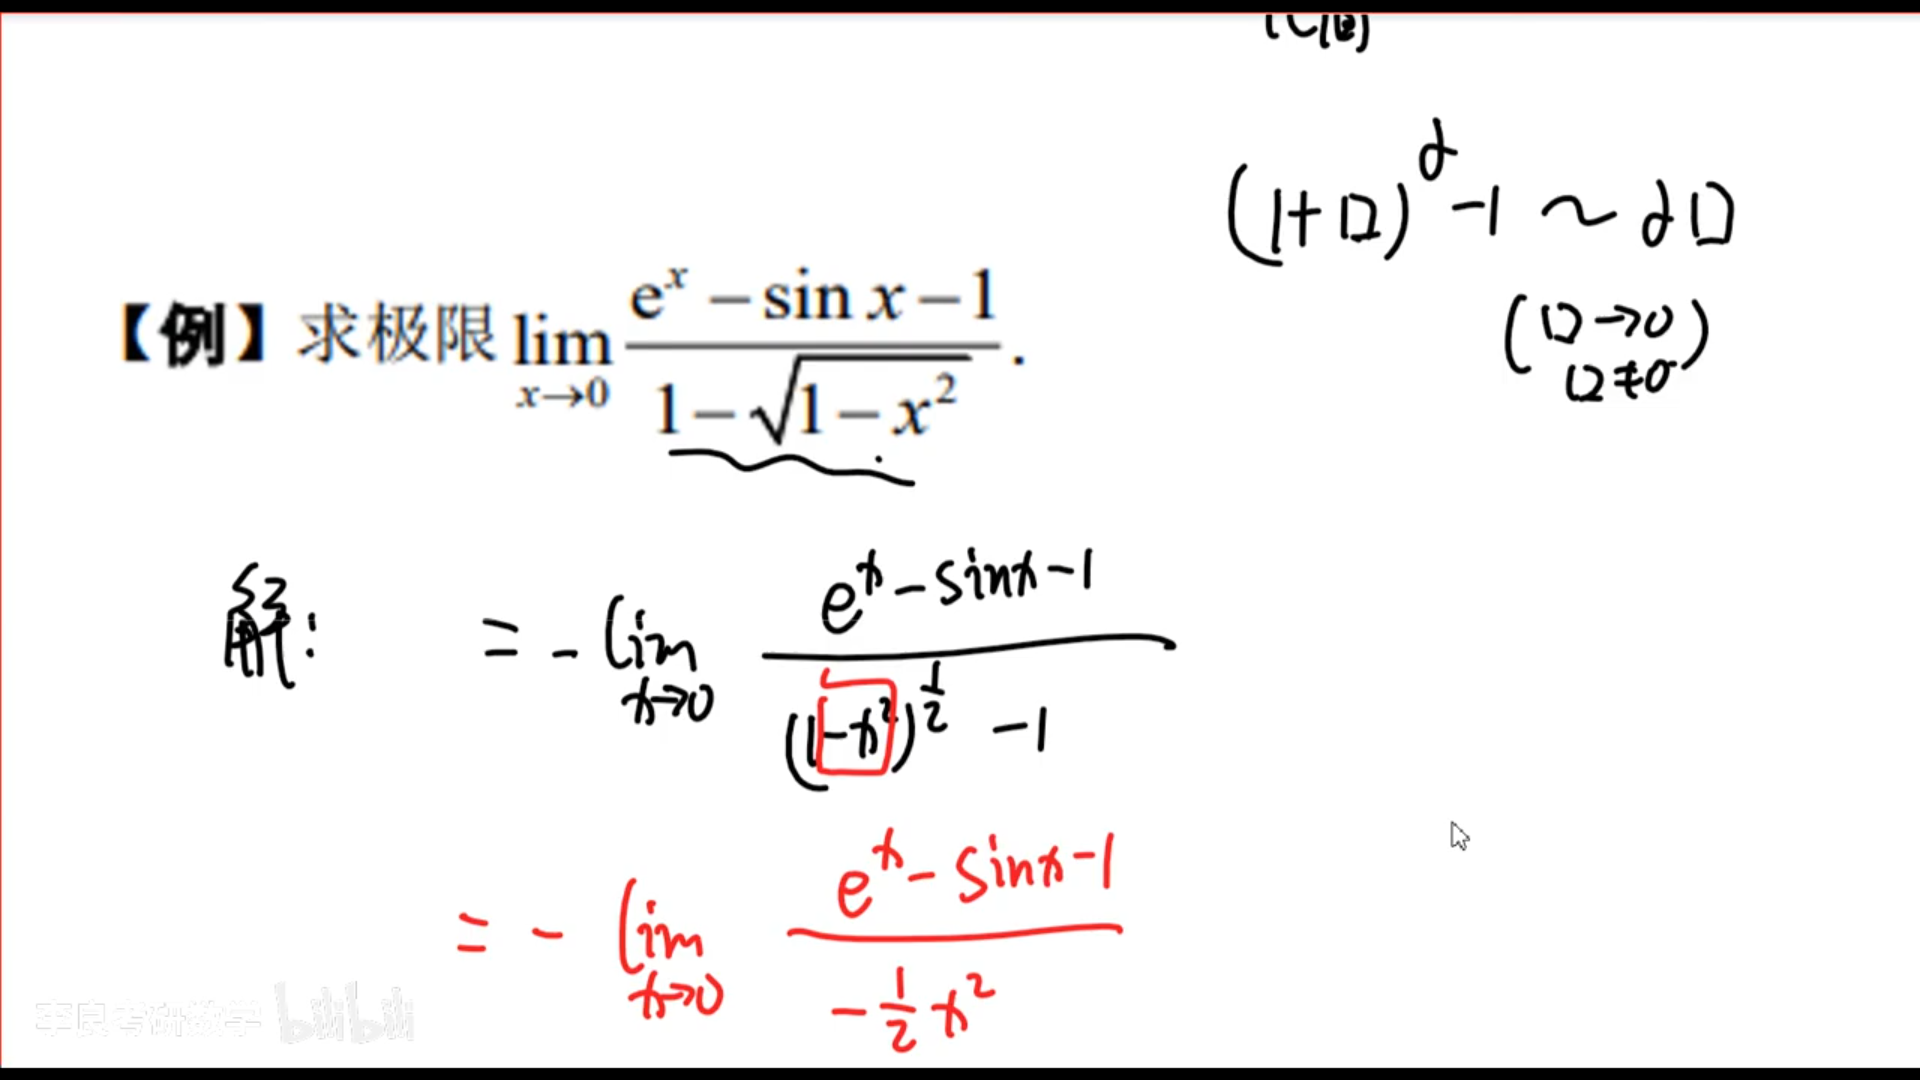 (1+□)^α -1 ~ α□
(□→0
□≠0)
【例】求极限 lim_{x→0} (e^x - sin x - 1)/(1 - √(1 - x²)).
解: = - lim_{x→0} (e^x - sinx - 1)/((1-x²)^{1/2} - 1)
= - lim_{x→0} (e^x - sinx - 1)/(-1/2 x²)
李良考研数学 bilibili